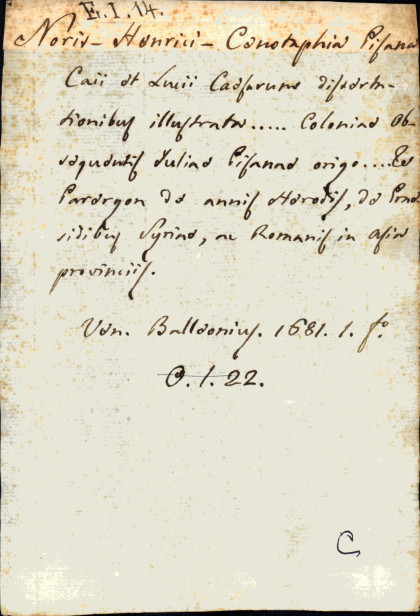 E.I.14.
Noris - Henrici - Cenotaphia Pisana
Caii et Lucii Caesarum disserta-
tionibus illustrata..... Coloniae Ob-
sequentis Juliae Pisanae origo.... Et
Parergon de annis Herodis, de Prae
sidibus Syriae, ac Romanis in Asia
provinciis.
Ven. Balleonius. 1681. 1. fo.
O.1.22.
C